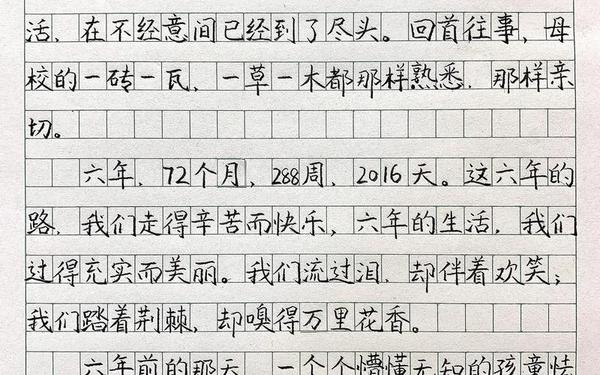 活，在不经意间已经到了尽头。回首往事，母
校的一砖一瓦，一草一木都那样熟悉，那样亲
切。
六年，72个月，288周，2016天。这六年的
路，我们走得辛苦而快乐，六年的生活，我们
过得充实而美丽。我们流过泪，却伴着欢笑；
我们踏着荆棘，却嗅得万里花香。
六年前的那天，一个个懵懂无知的孩童怯